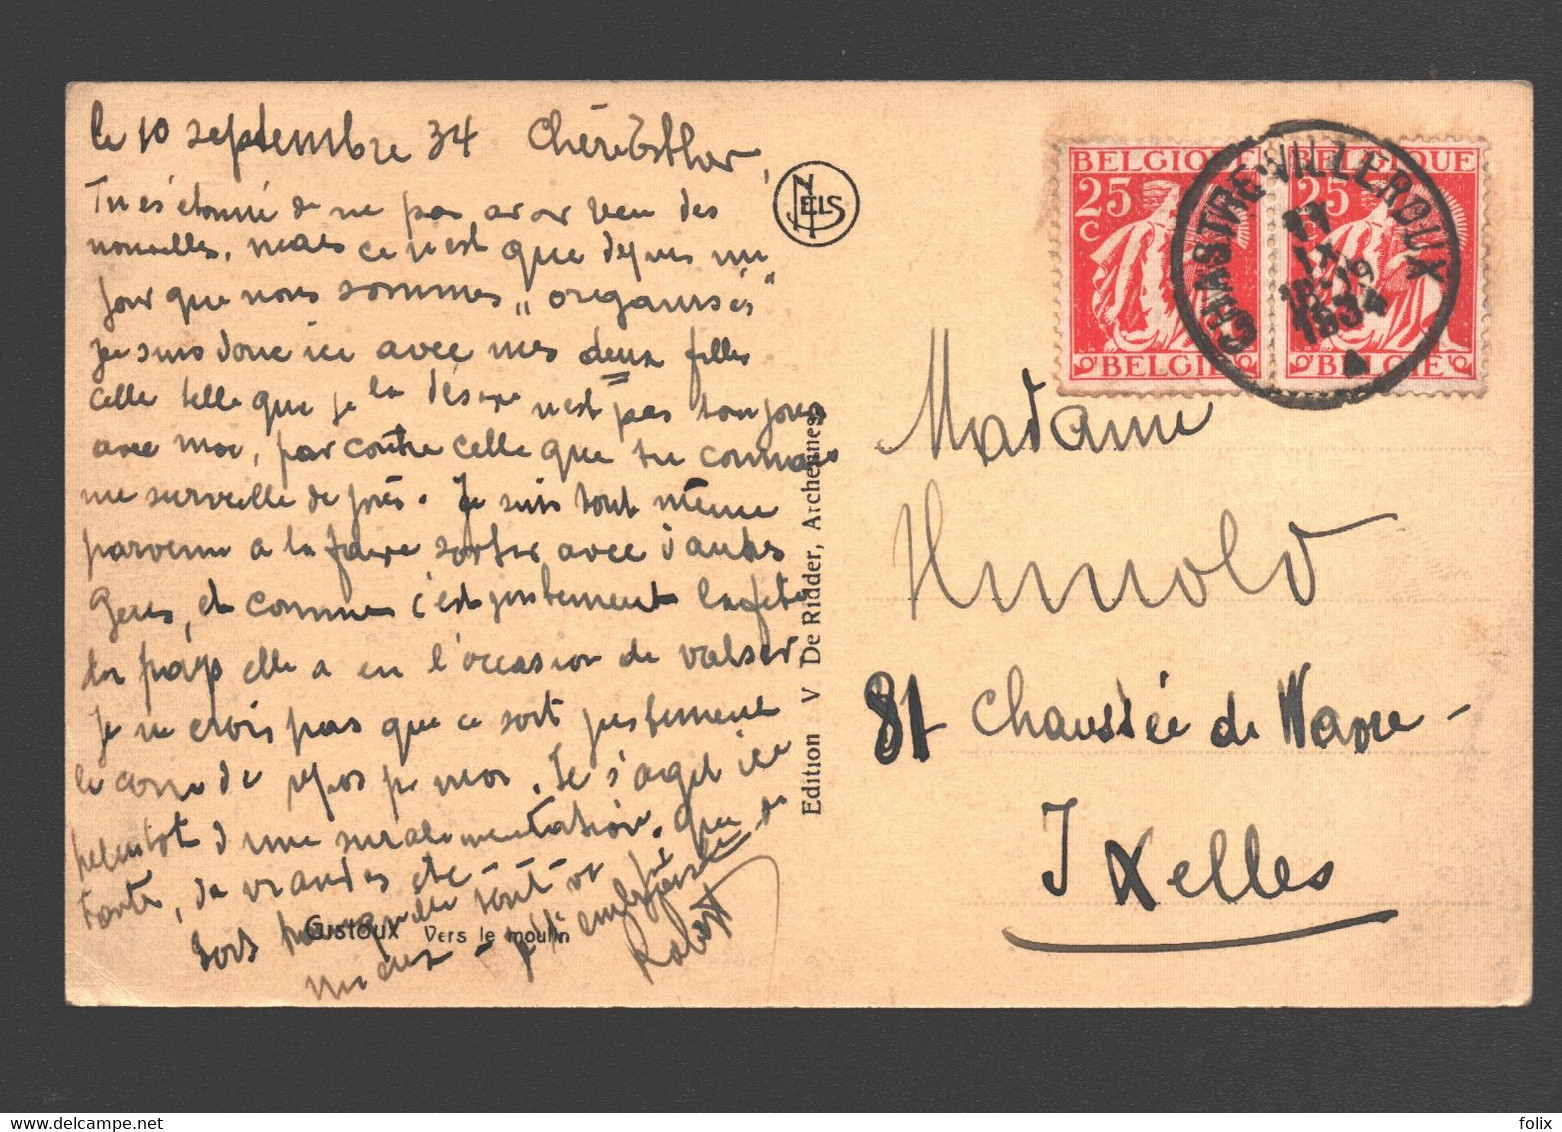 le 10 septembre 34 Chère Esther,
Tu es étonné de ne pas avoir reçu des
nouvelles, mais ce n'est que depuis un
jour que nous sommes "organisés"
je suis donc ici avec mes deux filles
celle telle que je la désire n'est pas toujours
avec moi, par contre celle que tu connais
me surveille de près. Je suis tout même
parvenu a la faire sortir avec d'autres
gens, et comme c'est justement la fête
du pays elle a eu l'occasion de valser
Je ne crois pas que ce soit justement
le de repos pr moi. Il s'agit ici
plutôt d'une suralimentation. Que de
tartes, de viandes etc
tout
mieux
Robert
Gistoux Vers le moulin
NELS
Edition : V De Ridder, Archennes
BELGIQUE
25
C
BELGIË
BELGIQUE
25
C
BELGIË
CHASTRE-VILLEROUX
11
IX
18-19
1934
Madame
Arnold
81 Chaussée de Wavre -
Ixelles
folix